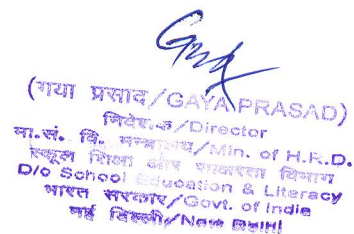 (गया प्रसाद/GAYA PRASAD)
निदेशक/Director
मा.सं. वि. मन्त्रालय/Min. of H.R.D.
स्कूल शिक्षा और साक्षरता विभाग
D/o School Education & Literacy
भारत सरकार/Govt. of India
नई दिल्ली/New Delhi